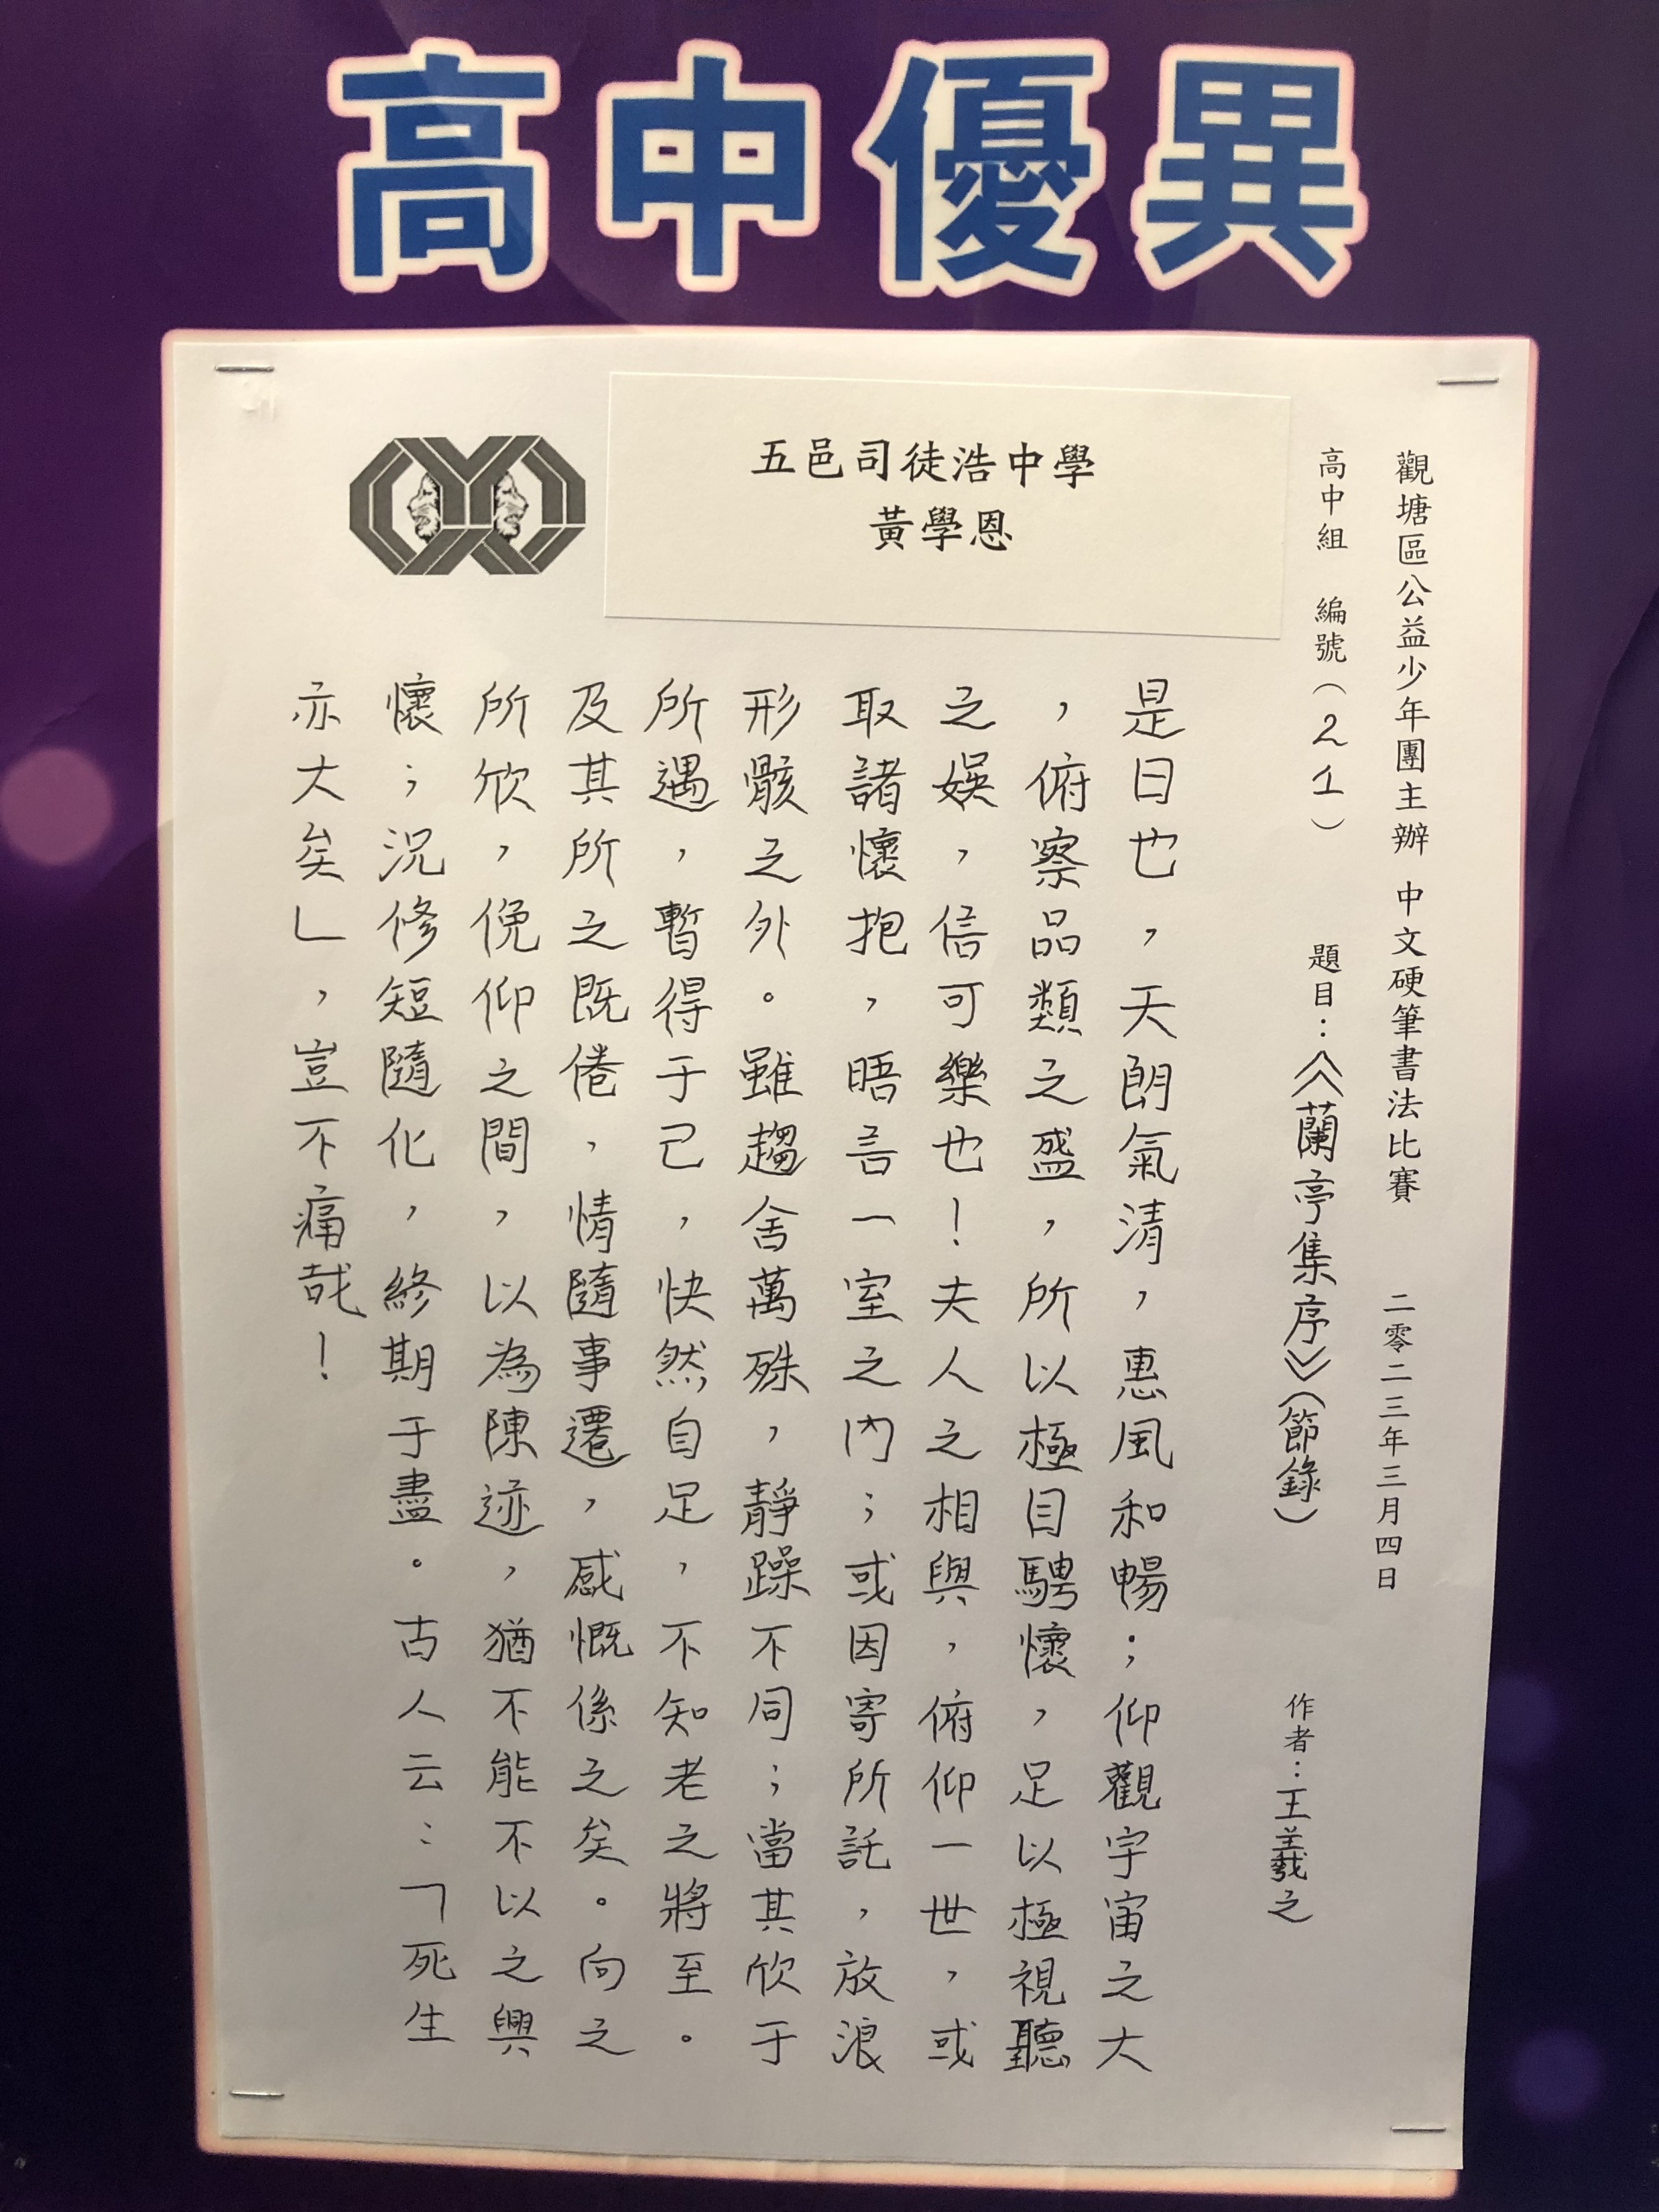 高中優異
五邑司徒浩中學
黃學恩
觀塘區公益少年團主辦 中文硬筆書法比賽 二零二三年三月四日
高中組 編號（21） 題目：《蘭亭集序》（節錄） 作者：王羲之
是日也，天朗氣清，惠風和暢；仰觀宇宙之大
，俯察品類之盛，所以極目騁懷，足以極視聽
之娛，信可樂也！夫人之相與，俯仰一世，或
取諸懷抱，晤言一室之內；或因寄所託，放浪
形骸之外。雖趨舍萬殊，靜躁不同；當其欣于
所遇，暫得于己，快然自足，不知老之將至。
及其所之既倦，情隨事遷，感慨係之矣。向之
所欣，俛仰之間，以為陳迹，猶不能不以之興
懷；況修短隨化，終期于盡。古人云：「死生
亦大矣」，豈不痛哉！